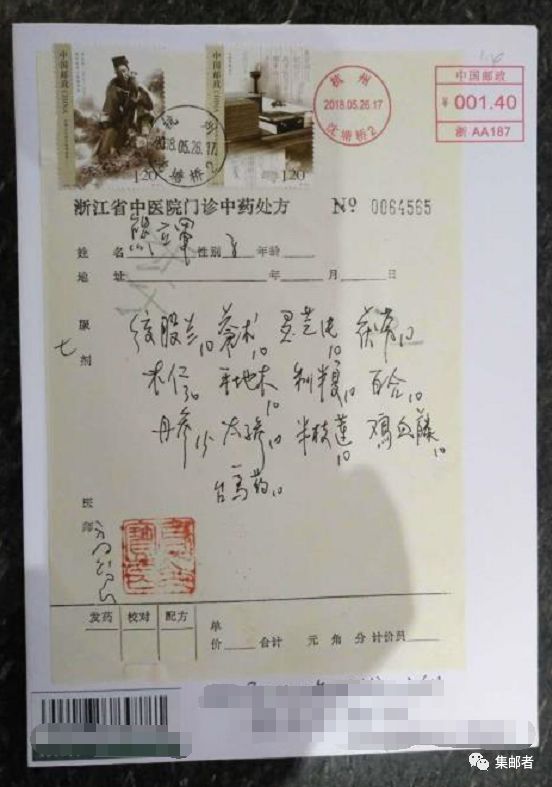 中国邮政 CHINA
1.20
中国邮政 CHINA
1.20
杭州
2018.05.26.17
杭州
2018.05.26.17
沈塘桥2
中国邮政
¥ 001.40
浙.AA187
浙江省中医院门诊中药处方 No 0064565
姓名 性别 年龄
地址 年 月 日
服 剂 七
绞股兰10 苍术10 灵芝 10 茯苓10
米仁30 平地木10 制半夏10 百合10
丹参15 太子参10 半枝莲10 鸡血藤10
台乌药10
医师
发药 校对 配方 单价 合计 元 角 分 计价员
集邮者